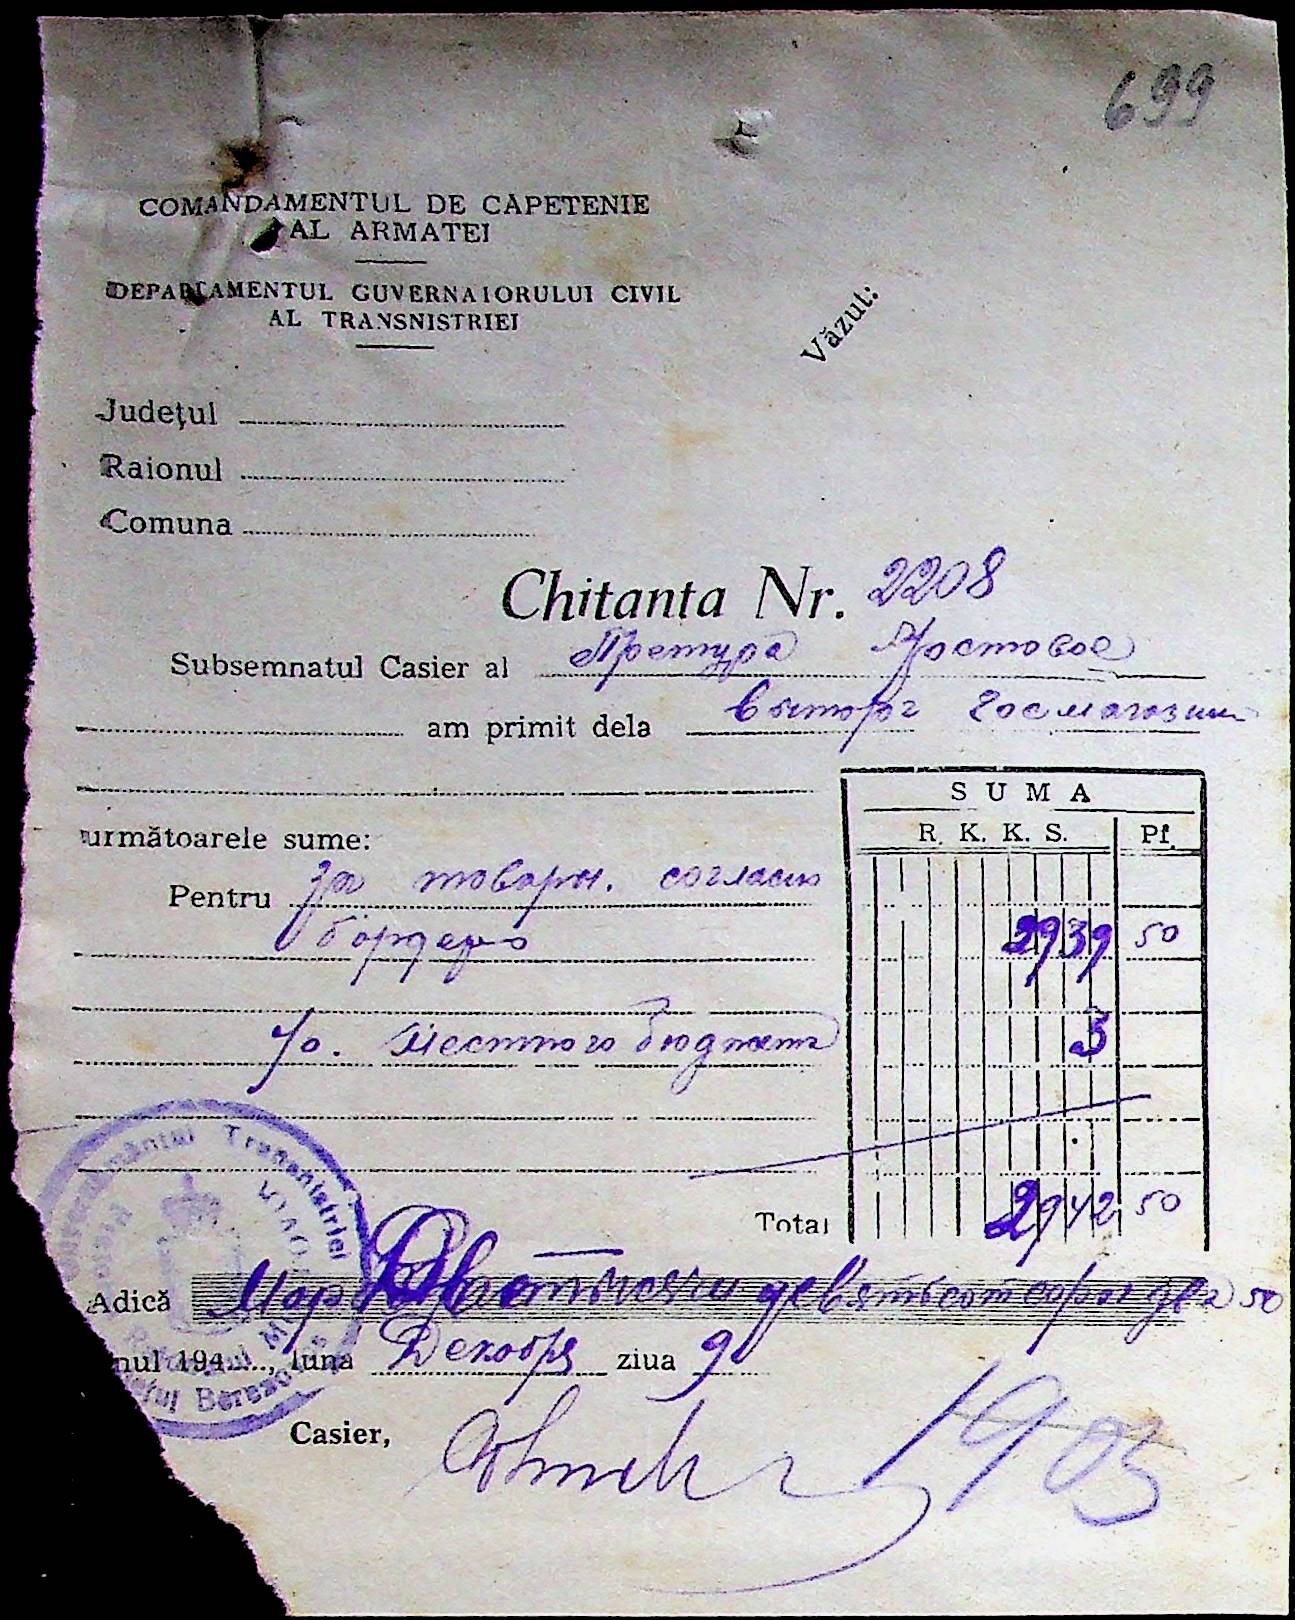 699
COMANDAMENTUL DE CAPETENIE
AL ARMATEI
DEPARTAMENTUL GUVERNATORULUI CIVIL
AL TRANSNISTRIEI
Văzut:
Județul
Raionul
Comuna
Chitanta Nr. 2208
Subsemnatul Casier al Претура Мостовое
am primit dela госмагазин
SUMA
următoarele sume: R. K. K. S. Pf.
Pentru за товары. согласно
бордеро 2939 50
Местного бюджета 3
Total 2942 50
Adică Мар Две тысячи девятьсот сорок два 50
nul 194..., luna Декабря ziua 9
Casier,
1903
Transnistriei